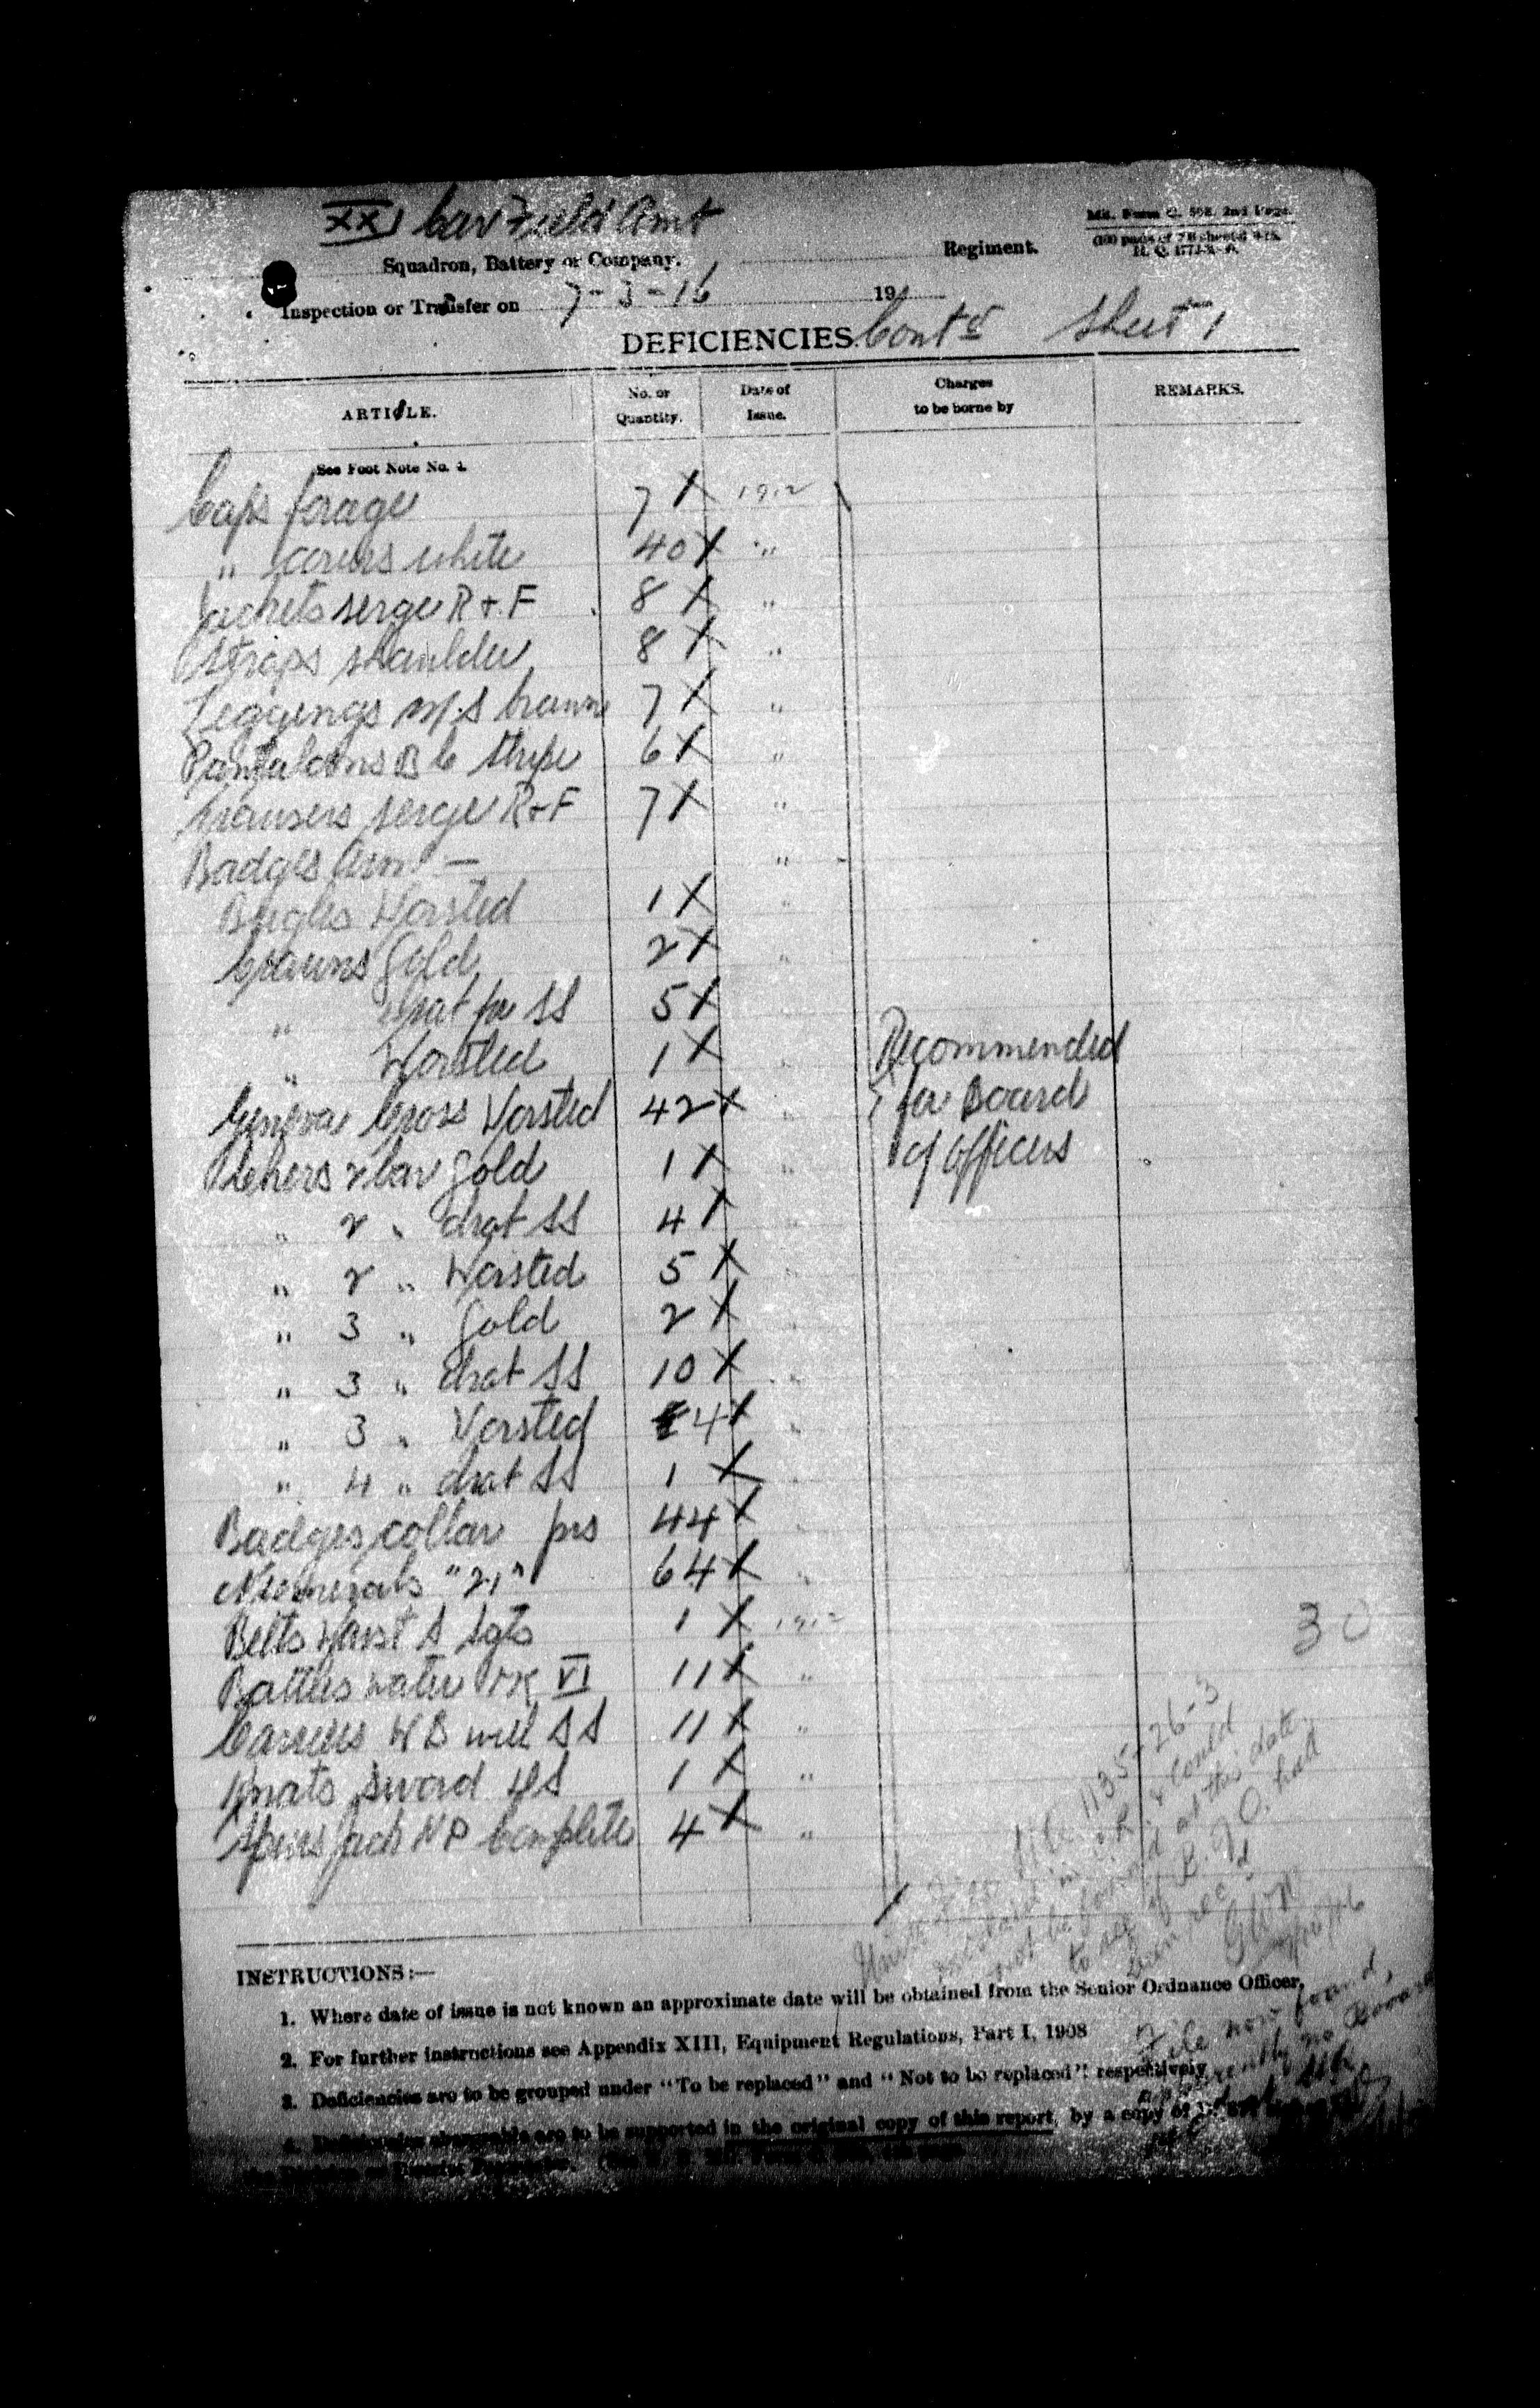 XXI Cav Field Amt
Squadron, Battery or Company. Regiment.
Mil. Form C. 508. 2nd Page.
H. Q.
Inspection or Transfer on 7-3-16 191
DEFICIENCIES Contd Sheet 1
ARTICLE. No. or Quantity. Date of Issue. Charges to be borne by REMARKS.
See Foot Note No. 1.
Caps forage 7 X 1912
" covers white 40 X "
Jackets serge R & F 8 X "
Straps shoulder 8 X "
Leggings M.S brown 7 X "
Pantaloons B C stripe 6 X "
Trousers serge R & F 7 X "
Badges Arm — "
Bugles Worsted 1 X "
Crowns Gold 2 X "
" drat for SS 5 X
" Worsted 1 X "
Recommended
for Board
of Officers
Geneva Cross Worsted 42 X "
Chevrons 2 bar Gold 1 X "
" 2 " drat SS 4 X "
" 2 " Worsted 5 X "
" 3 " Gold 2 X "
" 3 " drat SS 10 X "
" 3 " Worsted 4 X "
" 4 " drat SS 1 X "
Badges collar prs 44 X "
Numerals "21" 64 X "
Belts Waist S Sgts 1 X 1912
30
Bottles water Mk VI 11 X "
Carriers W B web SS 11 X "
Knots sword 1 X "
Spurs Jack N P Complete 4 X "
1135-26-3
could
not be found at this date
to see if B. of O. had
been recd
INSTRUCTIONS:—
1. Where date of issue is not known an approximate date will be obtained from the Senior Ordnance Officer.
2. For further instructions see Appendix XIII, Equipment Regulations, Part I, 1908
3. Deficiencies are to be grouped under "To be replaced" and "Not to be replaced" respectively
4. Deficiencies chargeable are to be supported in the original copy of this report, by a copy of
File now found,
apparently no Board